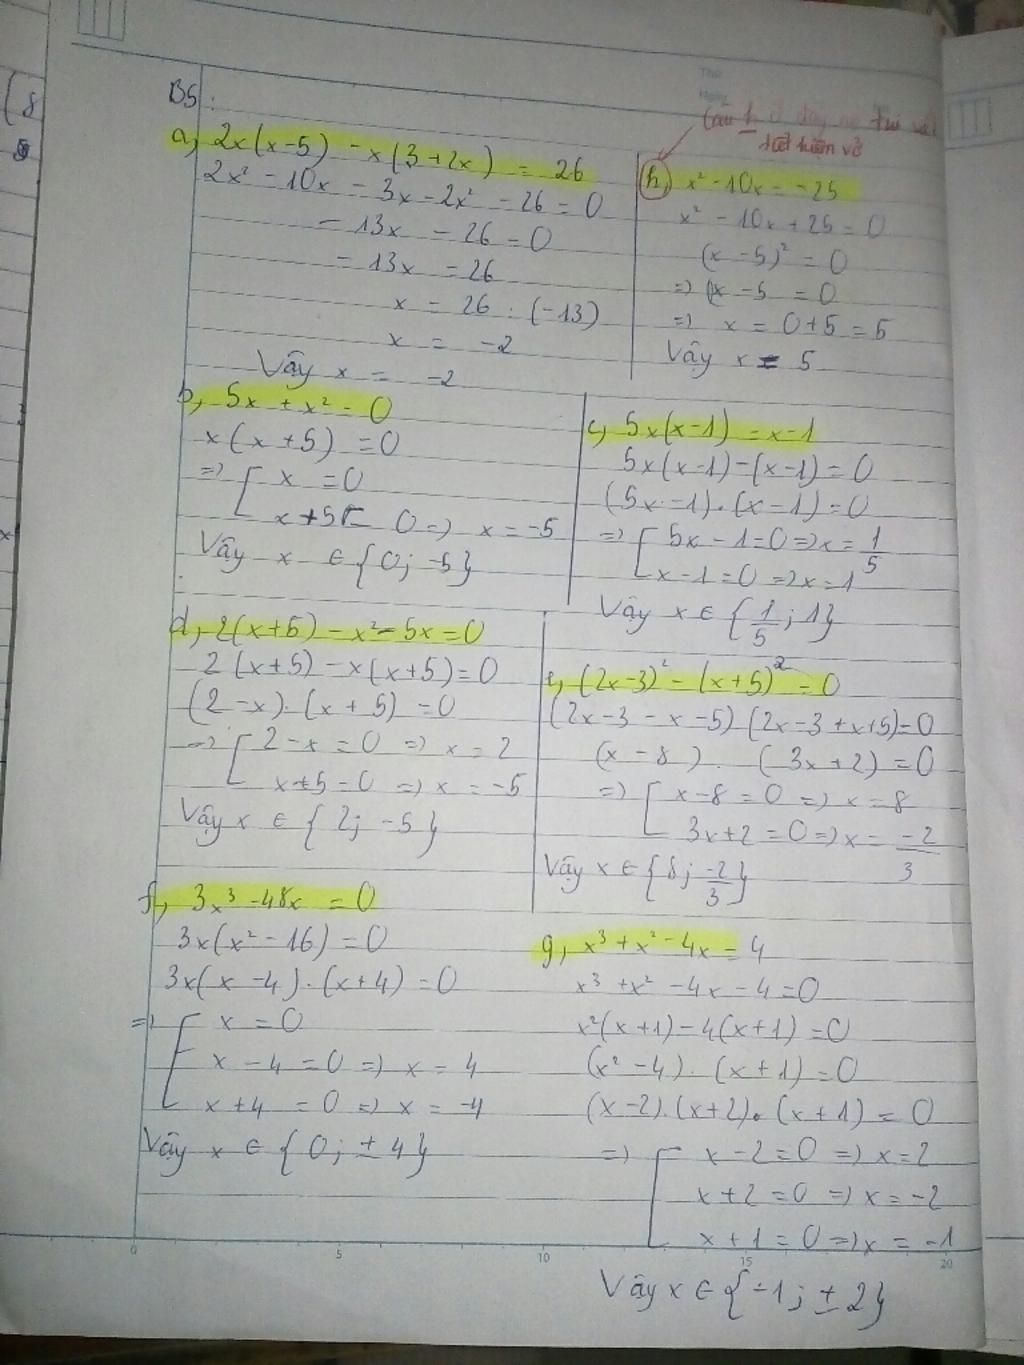 B5:
a, 2x(x-5) - x(3+2x) = 26
2x² - 10x - 3x - 2x² - 26 = 0
- 13x - 26 = 0
- 13x = 26
x = 26 : (-13)
x = -2
Vậy x = -2
Câu h ở đây
h, x² - 10x = -25
x² - 10x + 25 = 0
(x - 5)² = 0
=> x - 5 = 0
=> x = 0+5 = 5
Vậy x = 5
b, 5x + x² = 0
x(x+5) = 0
=> x = 0
x+5 = 0 => x = -5
Vậy x ∈ {0; -5}
c, 5x(x-1) = x-1
5x(x-1)-(x-1) = 0
(5x-1).(x-1) = 0
=> 5x-1=0 => x = 1/5
x-1=0 => x=1
Vậy x ∈ {1/5; 1}
d, 2(x+5) - x² - 5x = 0
2(x+5) - x(x+5) = 0
(2-x).(x+5) = 0
=> 2-x = 0 => x = 2
x+5 = 0 => x = -5
Vậy x ∈ {2; -5}
e, (2x-3)² - (x+5)² = 0
(2x-3-x-5)(2x-3+x+5)=0
(x-8).(3x+2) = 0
=> x-8 = 0 => x = 8
3x+2 = 0 => x = -2/3
Vậy x ∈ {8; -2/3}
f, 3x³ - 48x = 0
3x(x²-16) = 0
3x(x-4).(x+4) = 0
=> x = 0
x-4 = 0 => x = 4
x+4 = 0 => x = -4
Vậy x ∈ {0; ±4}
g, x³ + x² - 4x = 4
x³ + x² - 4x - 4 = 0
x²(x+1) - 4(x+1) = 0
(x²-4).(x+1) = 0
(x-2).(x+2).(x+1) = 0
=> x-2=0 => x=2
x+2 = 0 => x = -2
x+1 = 0 => x = -1
0 5 10 15 20
Vậy x ∈ {-1; ±2}